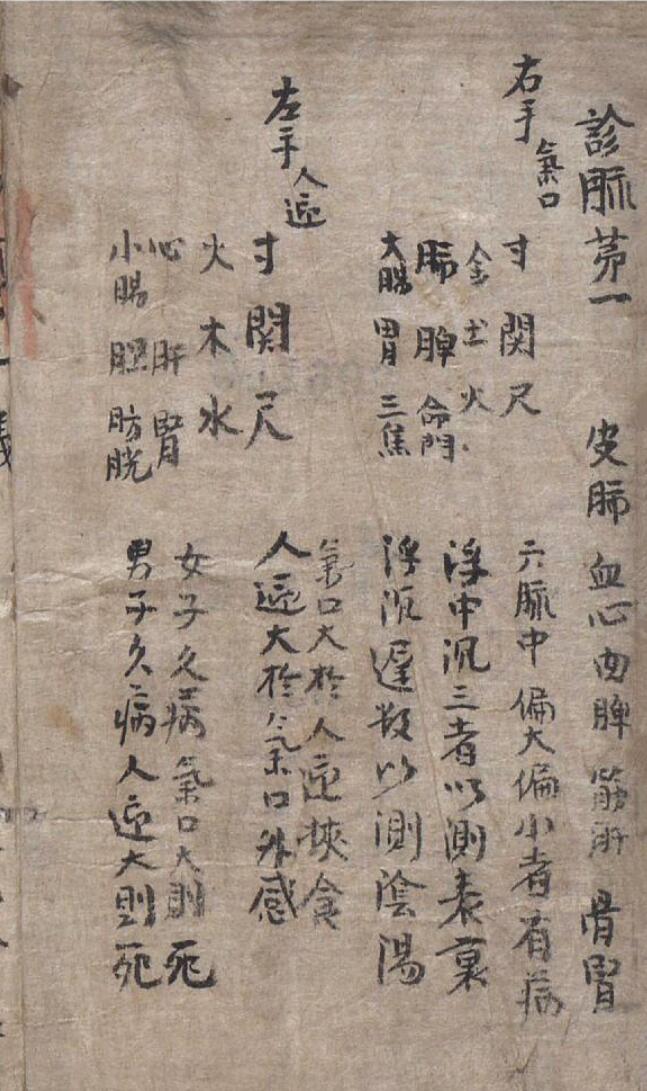 診脈苐一 皮肺 血心 肉脾 筋肝 骨腎
右手 氣口
寸 関 尺
金 土 火
肺 脾 命門
大腸 胃 三焦
六脈中偏大偏小者有病
浮中沉三者以測表裏
浮沉遲数以測陰陽
左手 人迎
寸 関 尺
火 木 水
心 肝 腎
小腸 胆 肪胱
氣口大於人迎挾食
人迎大於氣口外感
女子久病氣口大則死
男子久病人迎大則死